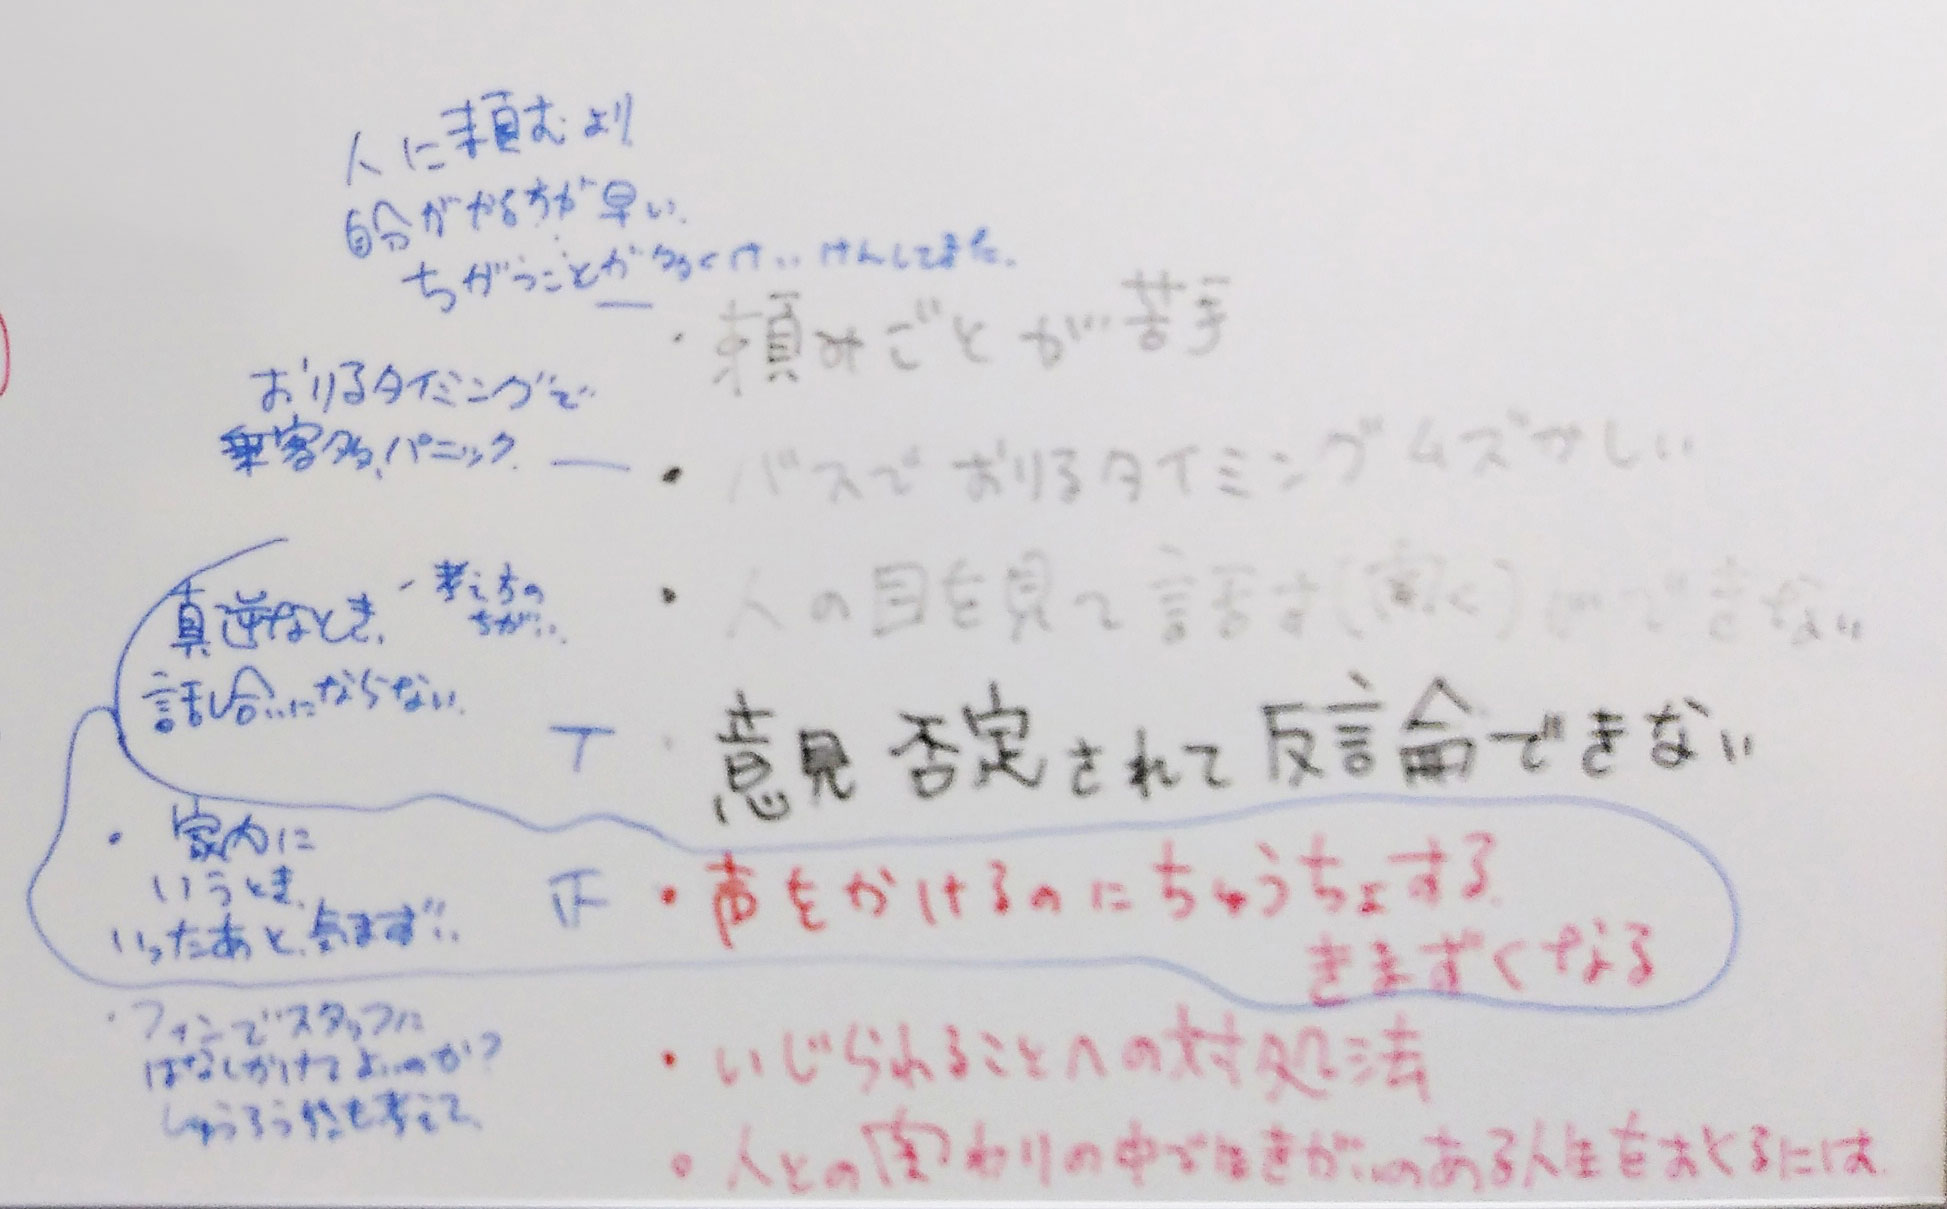 人に頼むより
自分がやる方が早い。
ちがうことが多くけいけんしてきた。
・頼みごとが苦手
おりるタイミングで
乗客多、パニック。
・バスでおりるタイミングムズかしい
・考え方の
ちがい。
・人の目を見て話す(聞く)ができない
真逆なとき、
話し合いにならない。
T
・意見否定されて反論できない
・家内に
いうとき、
いったあと、気まずい。
正
・声をかけるのにちゅうちょする
きまずくなる
・ファンでスタッフに
はなしかけてよいのか?
しゅうろう も考えて、
・いじられることへの対処法
・人との関わりの中で生きがいのある人生をおくるには